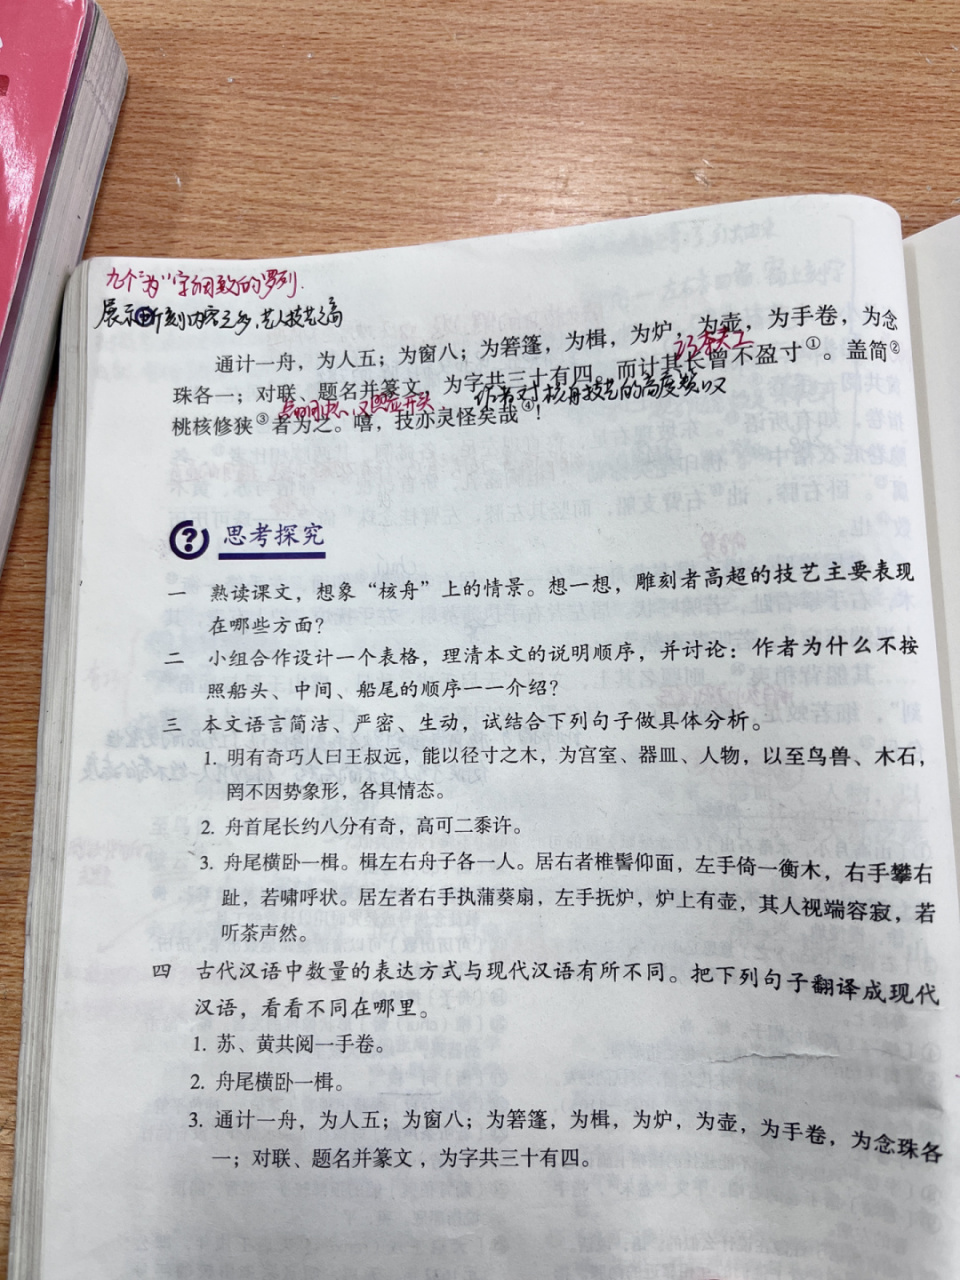 九个"为"字和数的罗列.
展示所刻内容之多,艺人技艺之高
通计一舟，为人五；为窗八；为箬篷，为楫，为炉，为壶，为手卷，为念
巧夺天工
珠各一；对联、题名并篆文，为字共三十有四。而计其长曾不盈寸①。盖简②
作者对核舟技艺的高度赞叹
桃核修狭③者为之。嘻，技亦灵怪矣哉④！
思考探究
一 熟读课文，想象“核舟”上的情景。想一想，雕刻者高超的技艺主要表现
在哪些方面？
二 小组合作设计一个表格，理清本文的说明顺序，并讨论：作者为什么不按
照船头、中间、船尾的顺序一一介绍？
三 本文语言简洁、严密、生动，试结合下列句子做具体分析。
1. 明有奇巧人曰王叔远，能以径寸之木，为宫室、器皿、人物，以至鸟兽、木石，
罔不因势象形，各具情态。
2. 舟首尾长约八分有奇，高可二黍许。
3. 舟尾横卧一楫。楫左右舟子各一人。居右者椎髻仰面，左手倚一衡木，右手攀右
趾，若啸呼状。居左者右手执蒲葵扇，左手抚炉，炉上有壶，其人视端容寂，若
听茶声然。
四 古代汉语中数量的表达方式与现代汉语有所不同。把下列句子翻译成现代
汉语，看看不同在哪里。
1. 苏、黄共阅一手卷。
2. 舟尾横卧一楫。
3. 通计一舟，为人五；为窗八；为箬篷，为楫，为炉，为壶，为手卷，为念珠各
一；对联、题名并篆文，为字共三十有四。